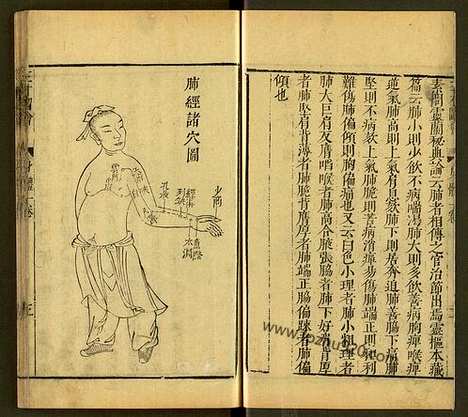 素問靈蘭秘典論云肺者相傅之官治節出焉靈樞本藏
篇云肺小則少飲不病喘渴肺大則多飲善病胸痺喉痺
逆氣肺高則上氣肩息欬肺下則居賁迫肺善脇下痛肺
堅則不病欬上氣肺脆則善病消癉易傷肺端正則和利
難傷肺偏傾則胸偏痛也又云白色小理者肺小粗理者
肺大巨肩反膺陷喉者肺高合腋張脇者肺下好肩背厚
者肺堅肩背薄者肺脆背膺厚者肺端正脇偏疎者肺偏
傾也
肺經諸穴圖
少商
魚際
太淵
經渠
列缺
孔最